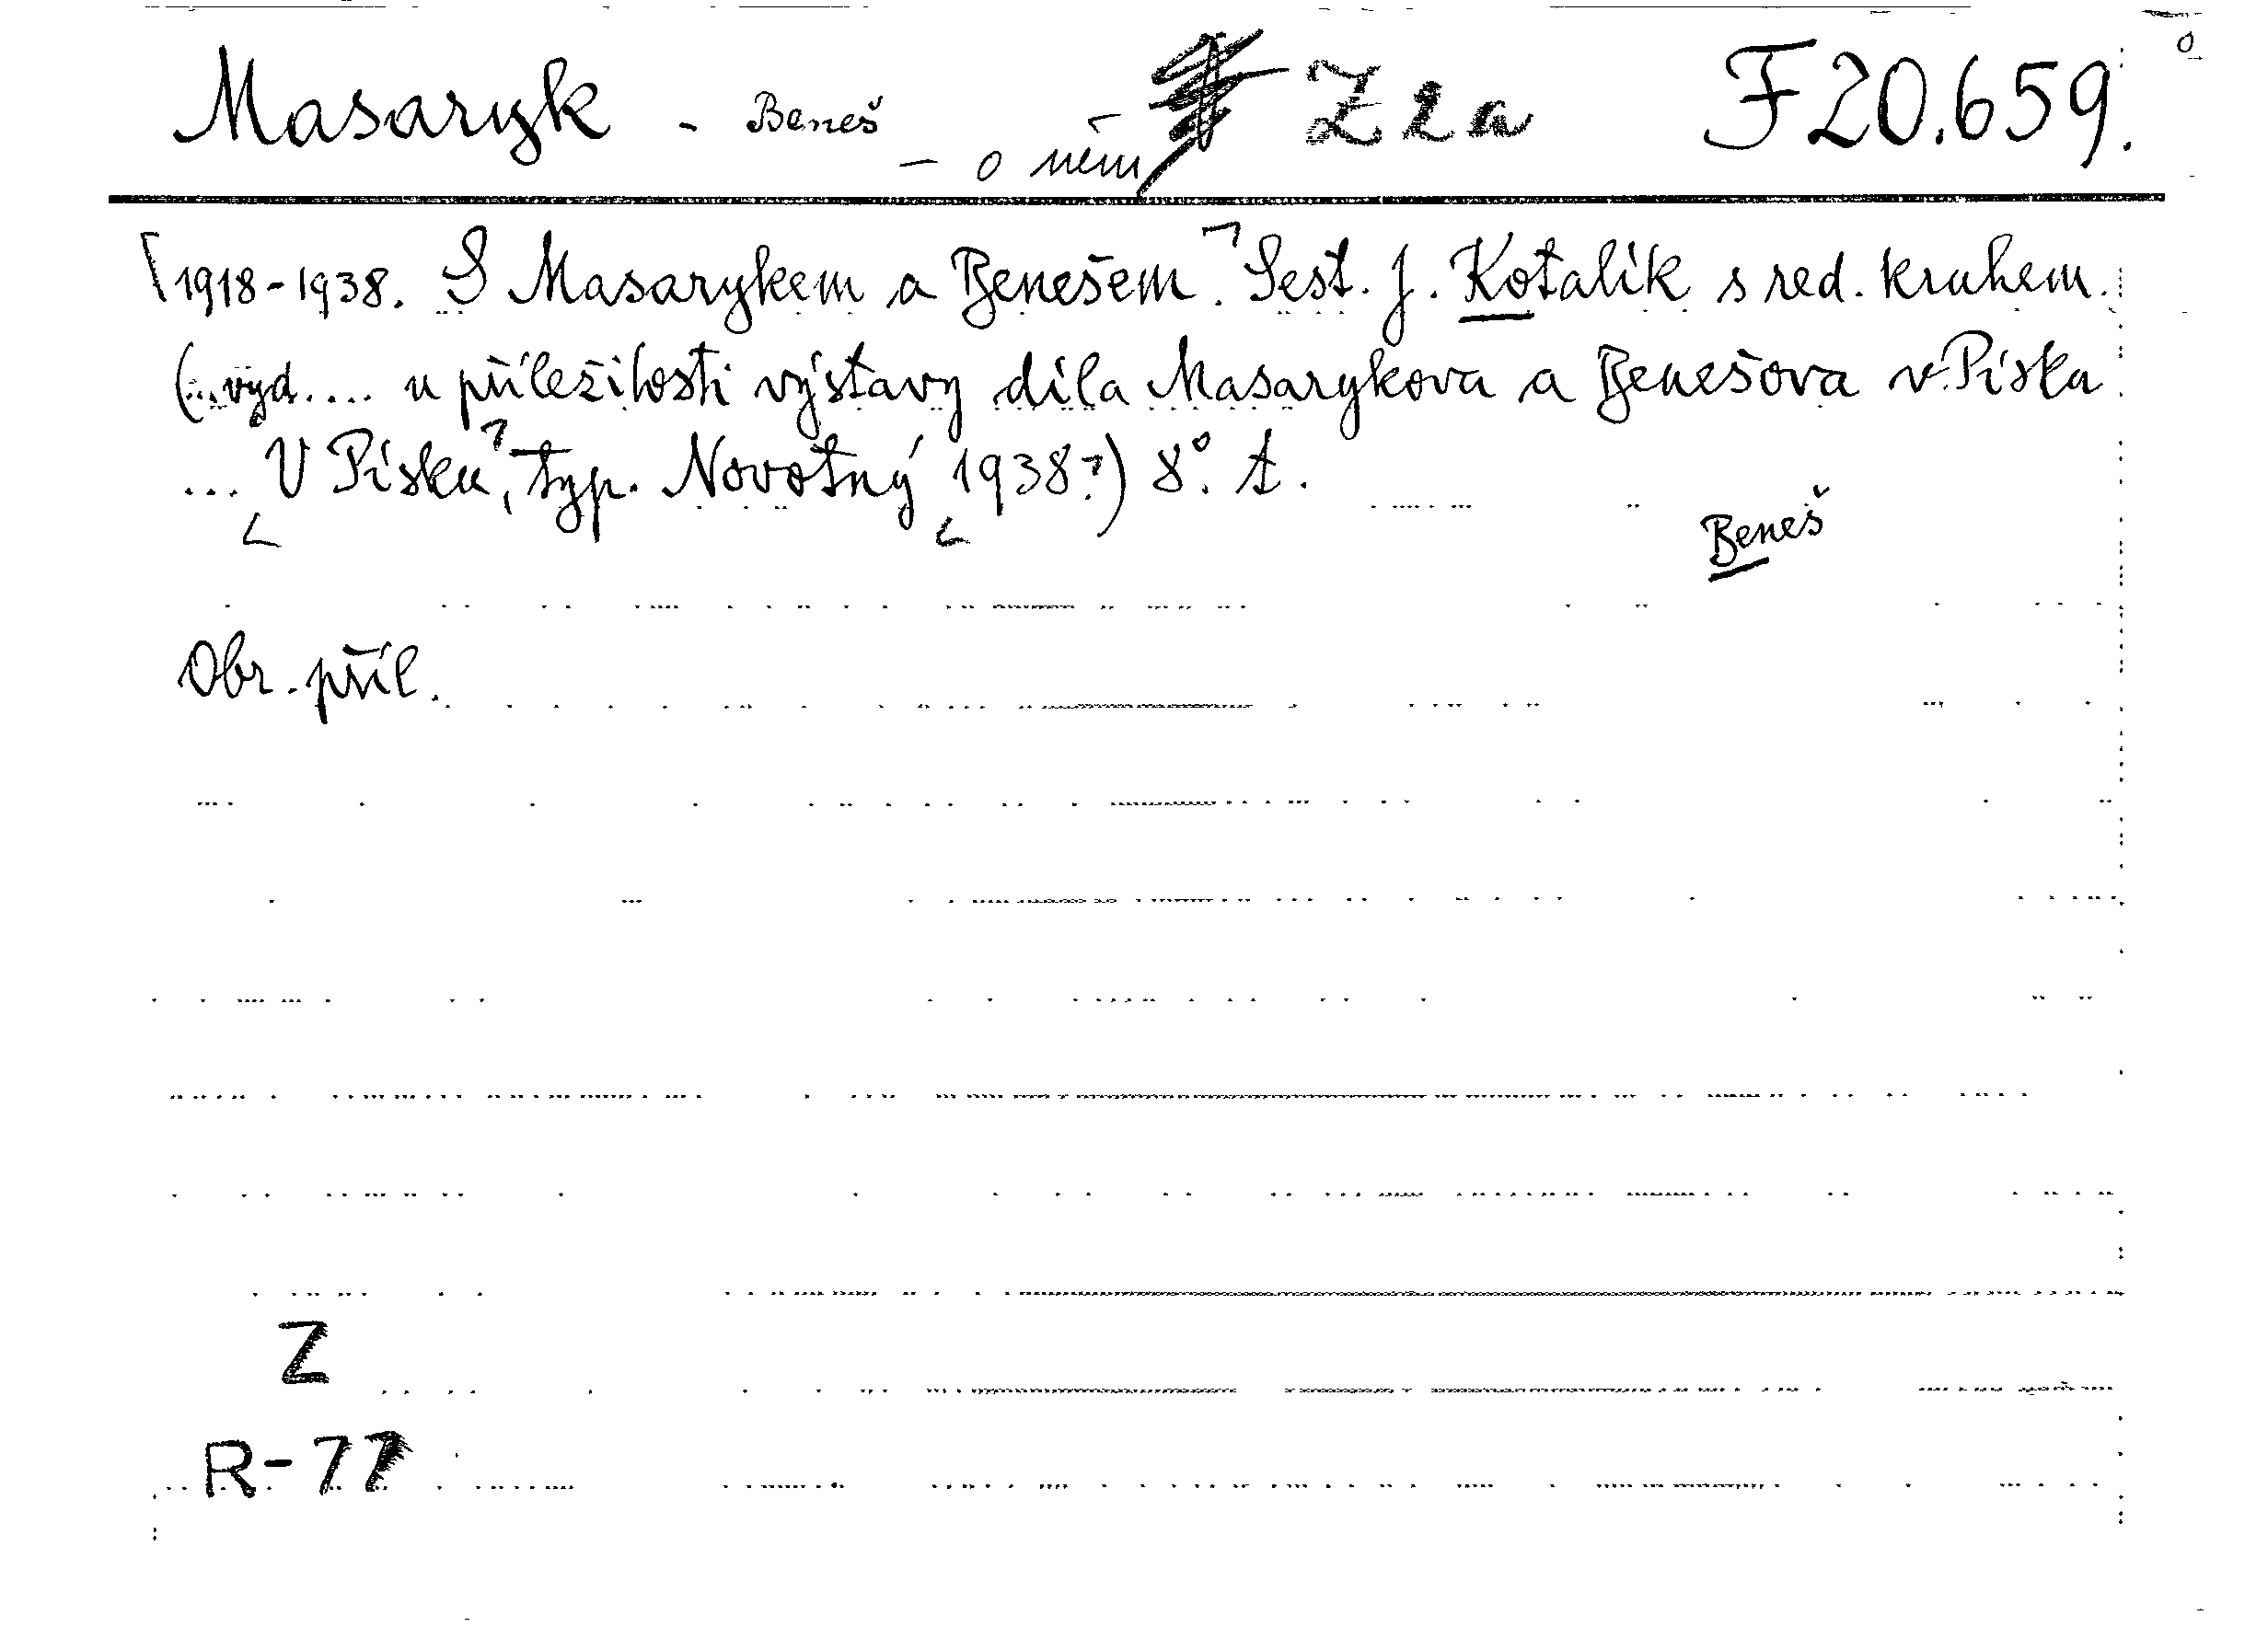 Masaryk - Beneš - o něm Z 2 a F 20.659.
[1918-1938. S Masarykem a Benešem.⌝ Sest. J. Kotalík s red. kruhem.
(...vyd.... u příležitosti výstavy díla Masarykova a Benešova v Písku
... V Písku⌝, typ. Novotný 1938?) 8°. A.
Beneš
Obr. příl.
Z
R-77